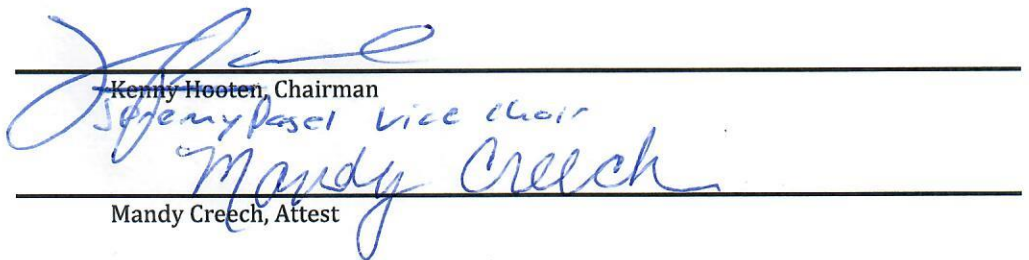 Kenny Hooten, Chairman
Jeremy Pasel Vice Chair
Mandy Creech
Mandy Creech, Attest